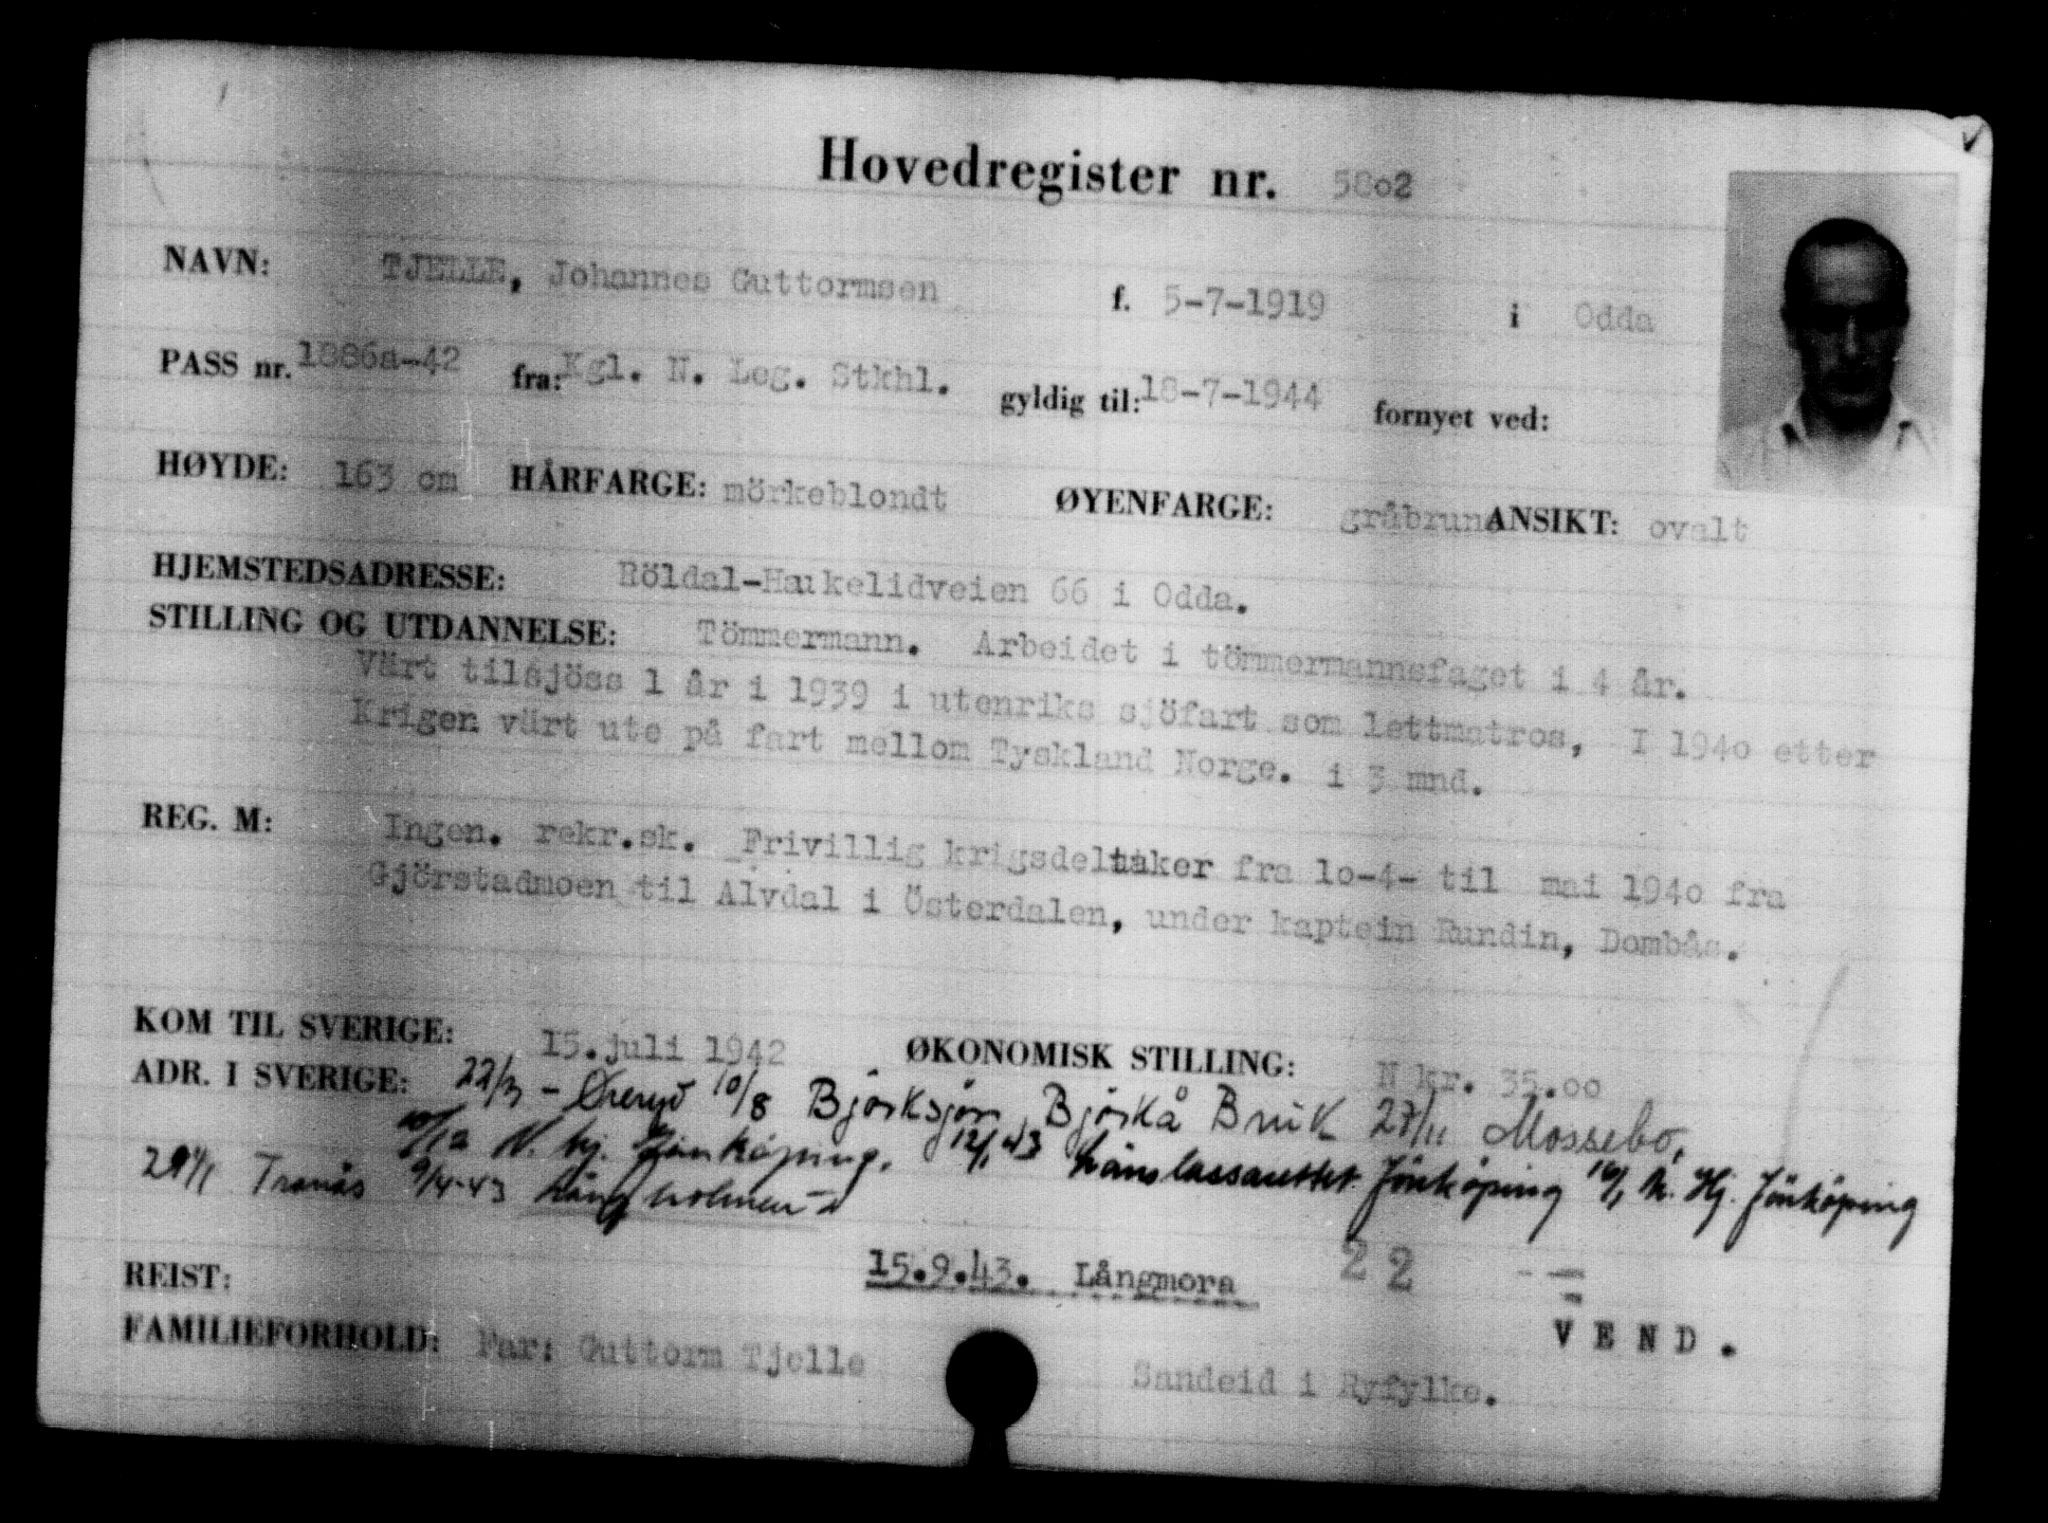 Hovedregister nr. 5802
NAVN: TJELLE, Johannes Guttormsen f. 5-7-1919 i Odda
PASS nr. 1886a-42 fra: Kgl. N. Leg. Stkhl. gyldig til: 18-7-1944 fornyet ved:
HØYDE: 163 cm HÅRFARGE: mörkeblondt ØYENFARGE: gråbrune ANSIKT: ovalt
HJEMSTEDSADRESSE: Röldal-Haukelidveien 66 i Odda.
STILLING OG UTDANNELSE: Tömmermann. Arbeidet i tömmermannsfaget i 4 år.
Värt tilsjöss 1 år i 1939 i utenriks sjöfart som lettmatros, I 194o etter
Krigen värt ute på fart mellom Tyskland Norge. i 3 mnd.
REG. M: Ingen. rekr.sk. Frivillig krigsdeltaker fra 1o-4- til mai 194o fra
Gjörstadmoen til Alvdal i Österdalen, under kaptein Rundin, Dombås.
KOM TIL SVERIGE: 15.juli 1942 ØKONOMISK STILLING: N kr. 35.oo
ADR. I SVERIGE: 22/3 - Öreryd 10/8 Björksjön, Björkå Bruk 27/11 Mossebo,
10/12 N. hj. Jönköping, 12/1 43 Länslassarettet Jönköping 16/1 N. Hj. Jönköping
29/1 Tranås 9/4-43 Långholmen
REIST: 15.9.43. Långmora 22
VEND.
FAMILIEFORHOLD: Far: Guttorm Tjelle Sandeid i Ryfylke.